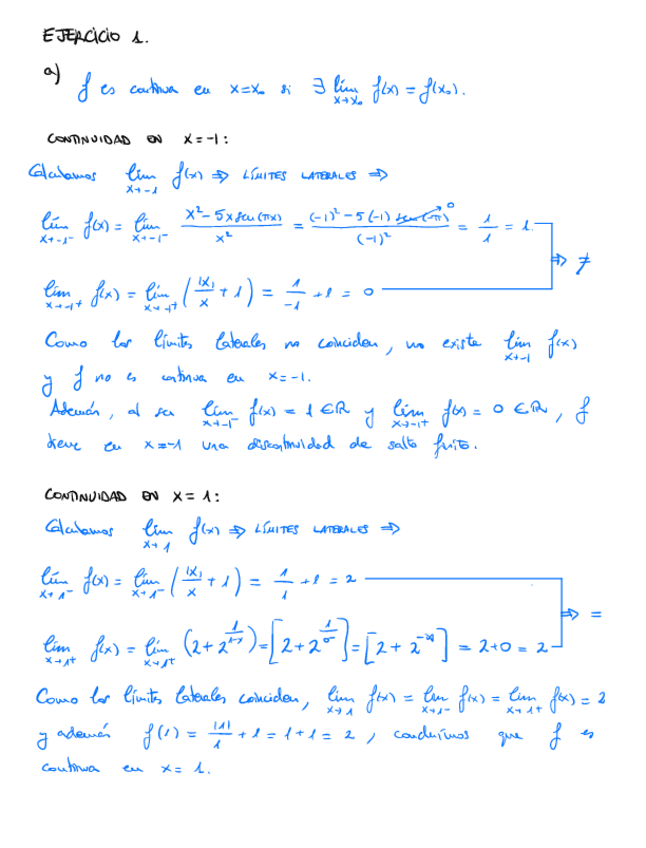 EJERCICIO 1.
a) f es continua en x=x₀ si ∃ lím_{x→x₀} f(x) = f(x₀).
CONTINUIDAD EN x=-1:
Calculamos lím_{x→-1} f(x) ⇒ LÍMITES LATERALES ⇒
lím_{x→-1⁻} f(x) = lím_{x→-1⁻} (x²-5x sen(πx))/x² = ((-1)²-5(-1) sen(-π))/(-1)² = 1/1 = 1 0
⇒ ≠
lím_{x→-1⁺} f(x) = lím_{x→-1⁺} (|x|/x + 1) = 1/-1 + 1 = 0
Como los límites laterales no coinciden, no existe lím_{x→-1} f(x)
y f no es continua en x=-1.
Además, al ser lím_{x→-1⁻} f(x) = 1 ∈ ℝ y lím_{x→-1⁺} f(x) = 0 ∈ ℝ, f
tiene en x=-1 una discontinuidad de salto finito.
CONTINUIDAD EN x=1:
Calculamos lím_{x→1} f(x) ⇒ LÍMITES LATERALES ⇒
lím_{x→1⁻} f(x) = lím_{x→1⁻} (|x|/x + 1) = 1/1 + 1 = 2
⇒ =
lím_{x→1⁺} f(x) = lím_{x→1⁺} (2+2^{1/(1-x)}) = [2+2^{1/0⁻}] = [2+2^{-∞}] = 2+0 = 2
Como los límites laterales coinciden, lím_{x→1} f(x) = lím_{x→1⁻} f(x) = lím_{x→1⁺} f(x) = 2
y además f(1) = |1|/1 + 1 = 1+1 = 2, concluimos que f es
continua en x=1.